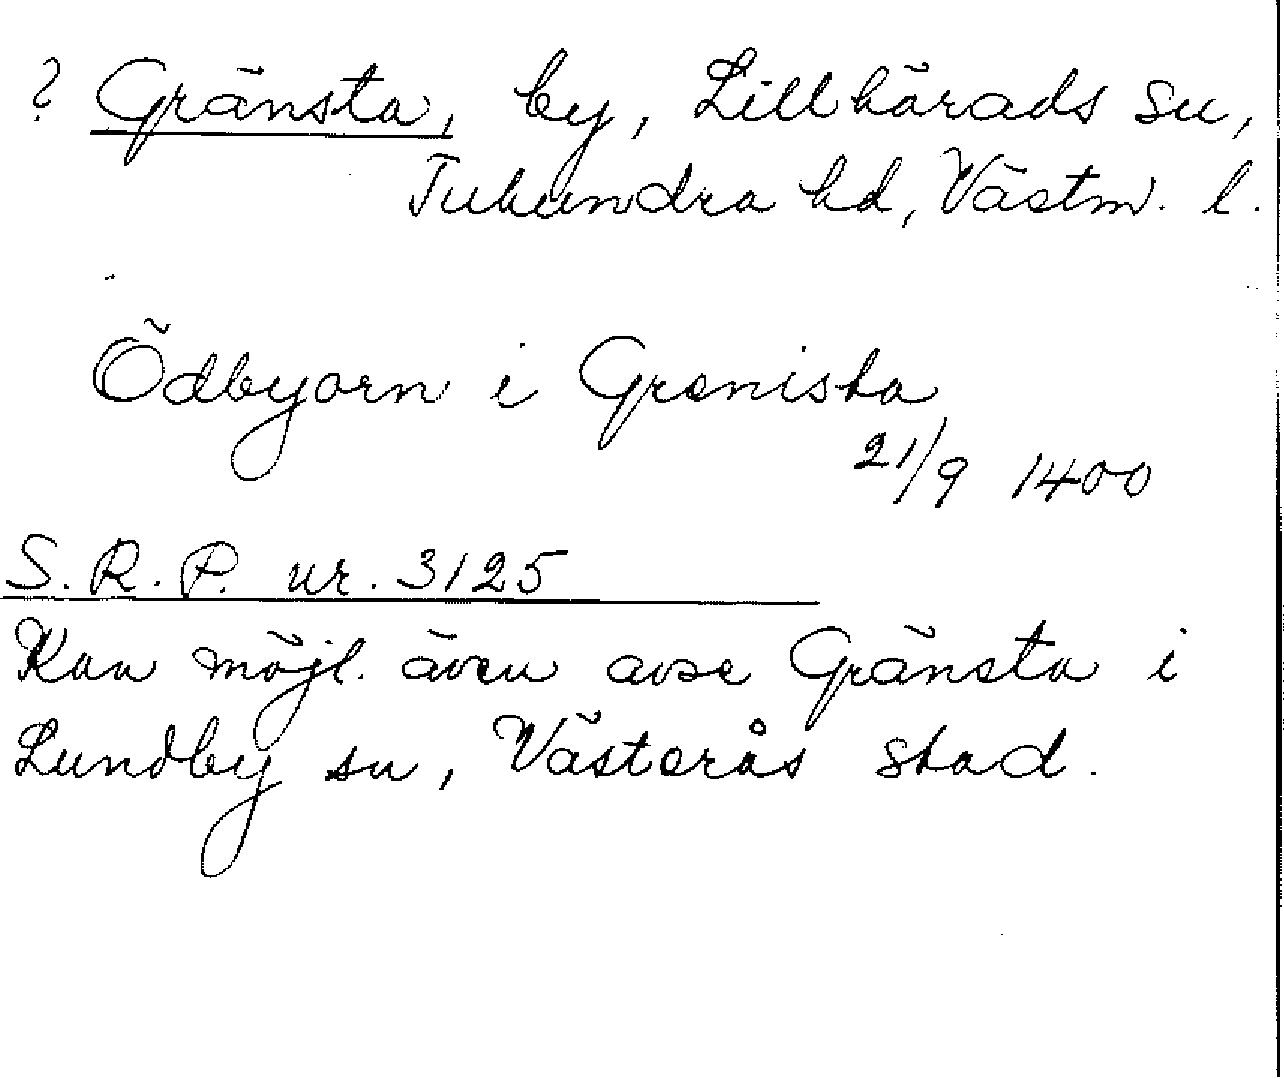 ? Gränsta, by, Lillhärads sn,
Tuhundra hd, Västm. l.
Ödbyorn i Grenista
21/9 1400
S.R.P. nr. 3125
Kan möjl. även avse Gränsta i
Lundby sn, Västerås stad.